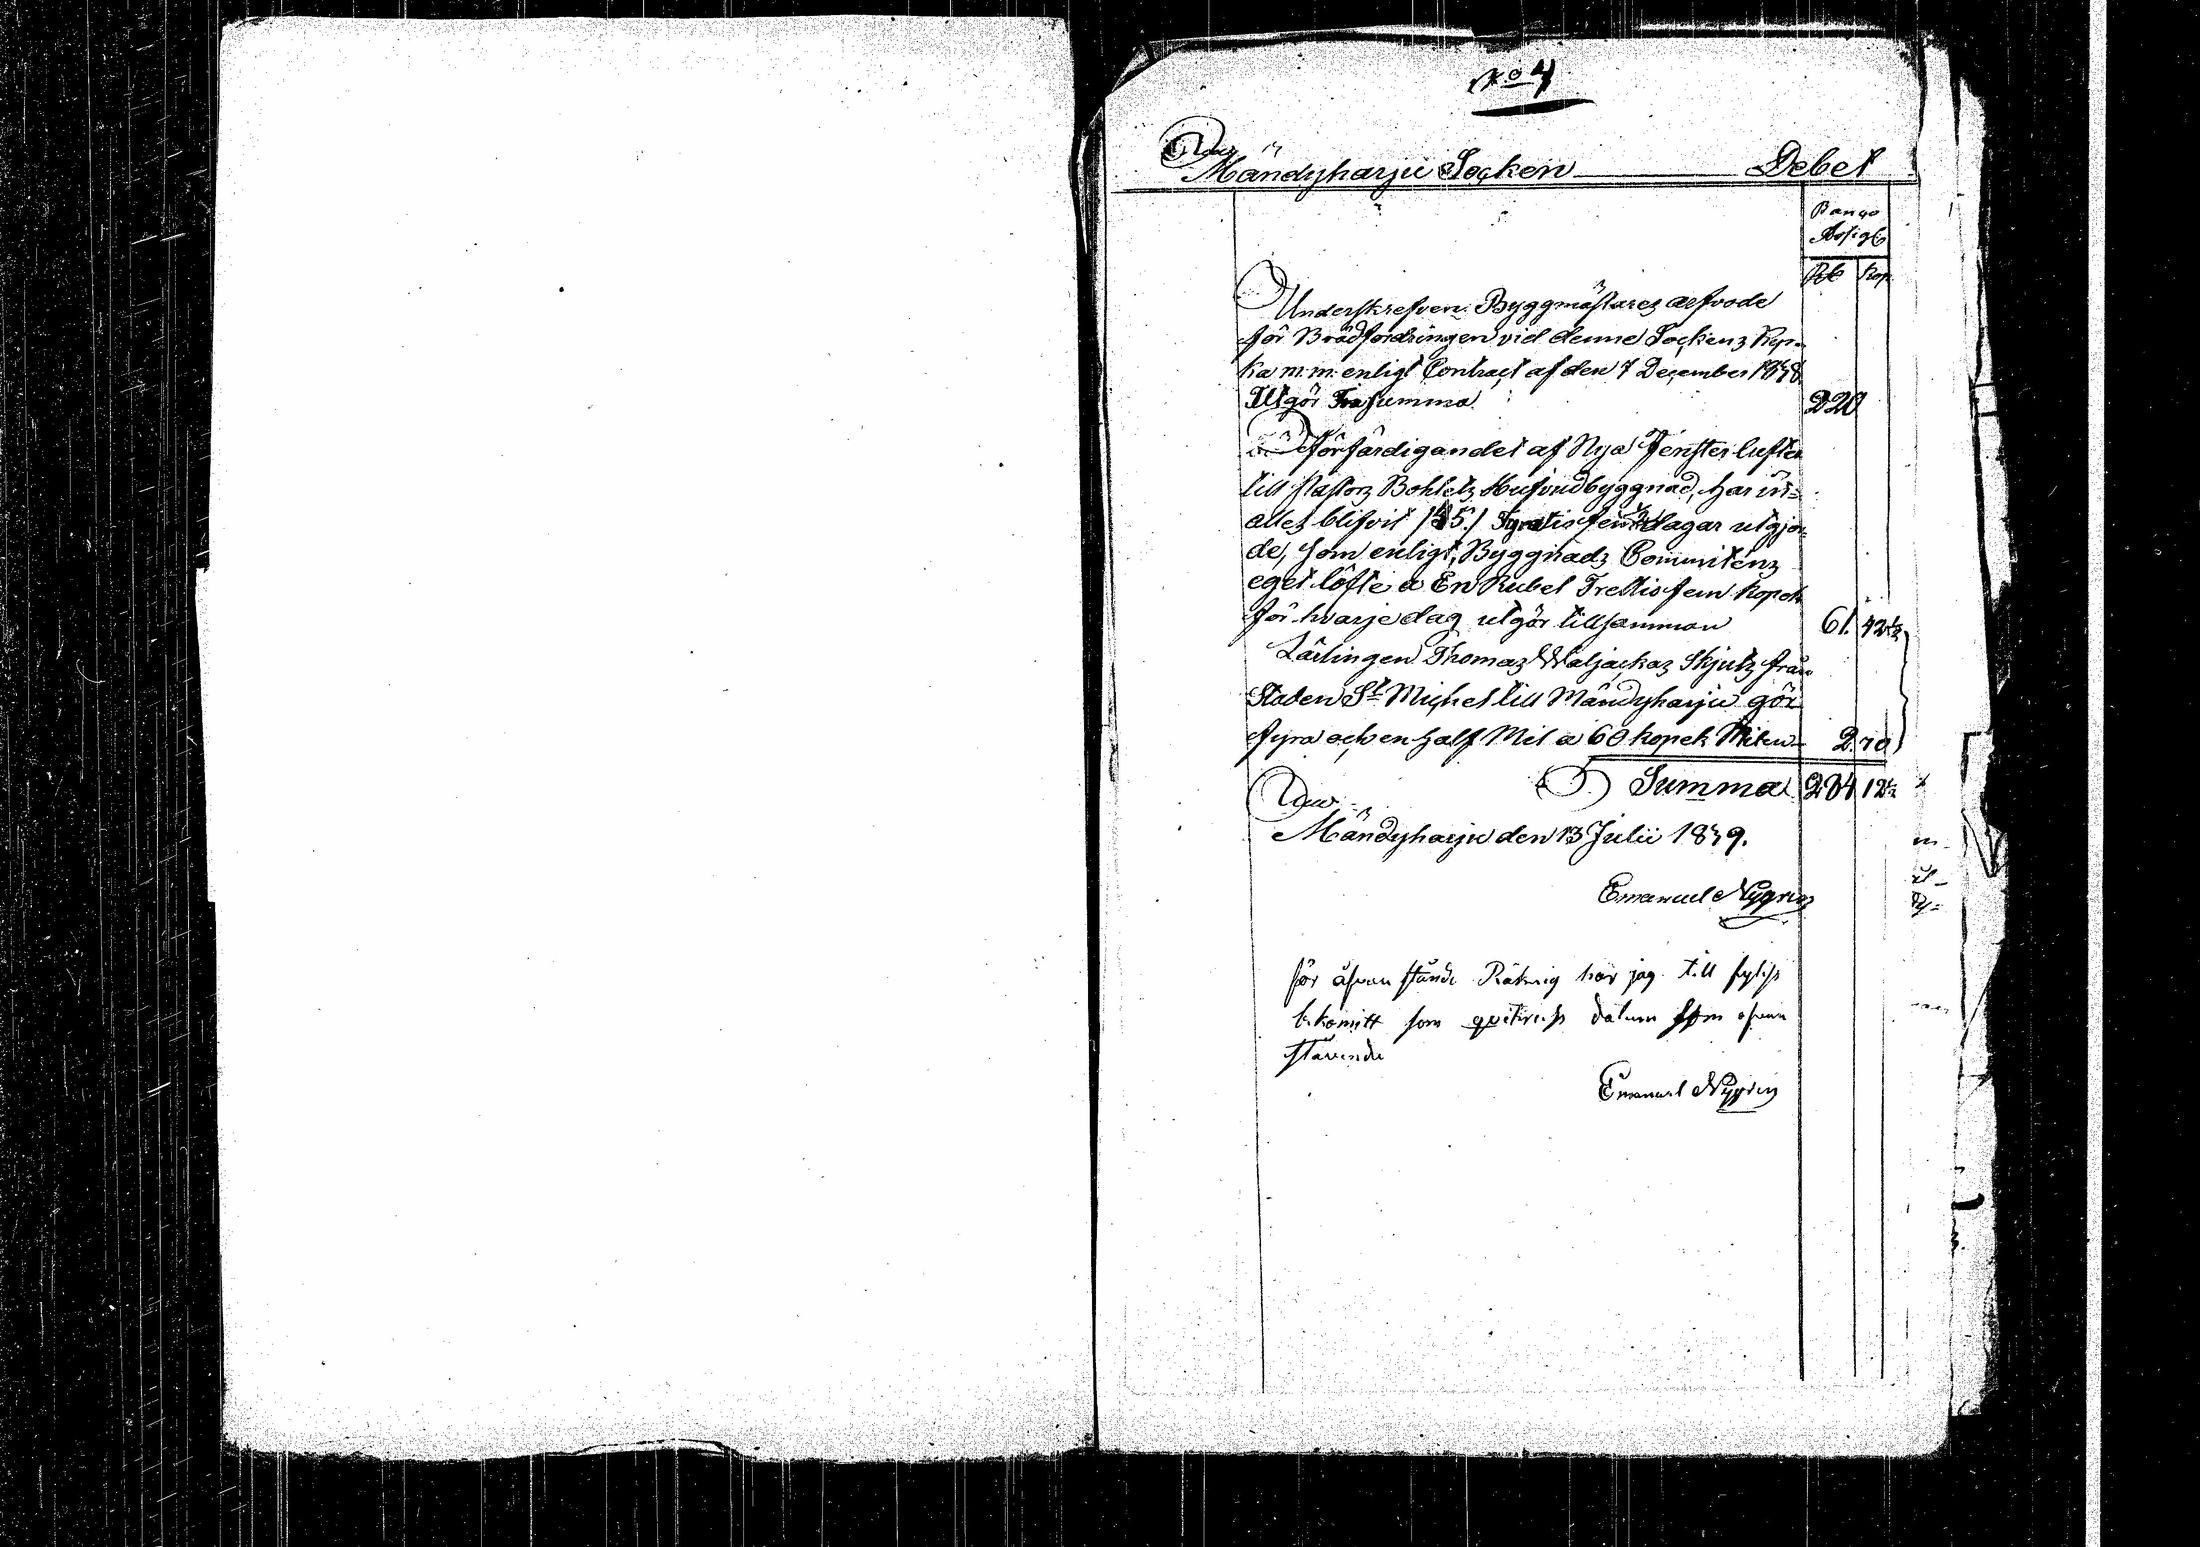 No 4
Mändyharju Socken Debet
Banco
Assigb
Rb Kop
Underskrefven Byggmästares arfvode
för Brädfordringen vid denne Sockens Kyr-
ka m:m: enligt Contract af den 7 December 1838
Utgör En summa 220
förfärdigandet af Nya Fenster lufter
till Pastors Bohlels Hufvudbyggnad, har in=
alles blifvit /45./ Fyratio fem dagar utgjor
de, som enligt Byggnads Committéns
eget löfte a En Rubel Trettio fem Kopek
för hvarje dag utgör tillsamman 61. 42½
Lärlingen Thomas Waljackas Skjuts från
Staden St Michel till Mändyharju gör
fyra och en half Mil a 60 kopek Milen 2. 70
Summa 284 12½
Mändyharju den 13 Julii 1839.
Emanuel Nygren
för ofvan stånde Räkning har jag till fyllest
bekomitt som qvitteras datum som ofvan
stående
Emanuel Nygren